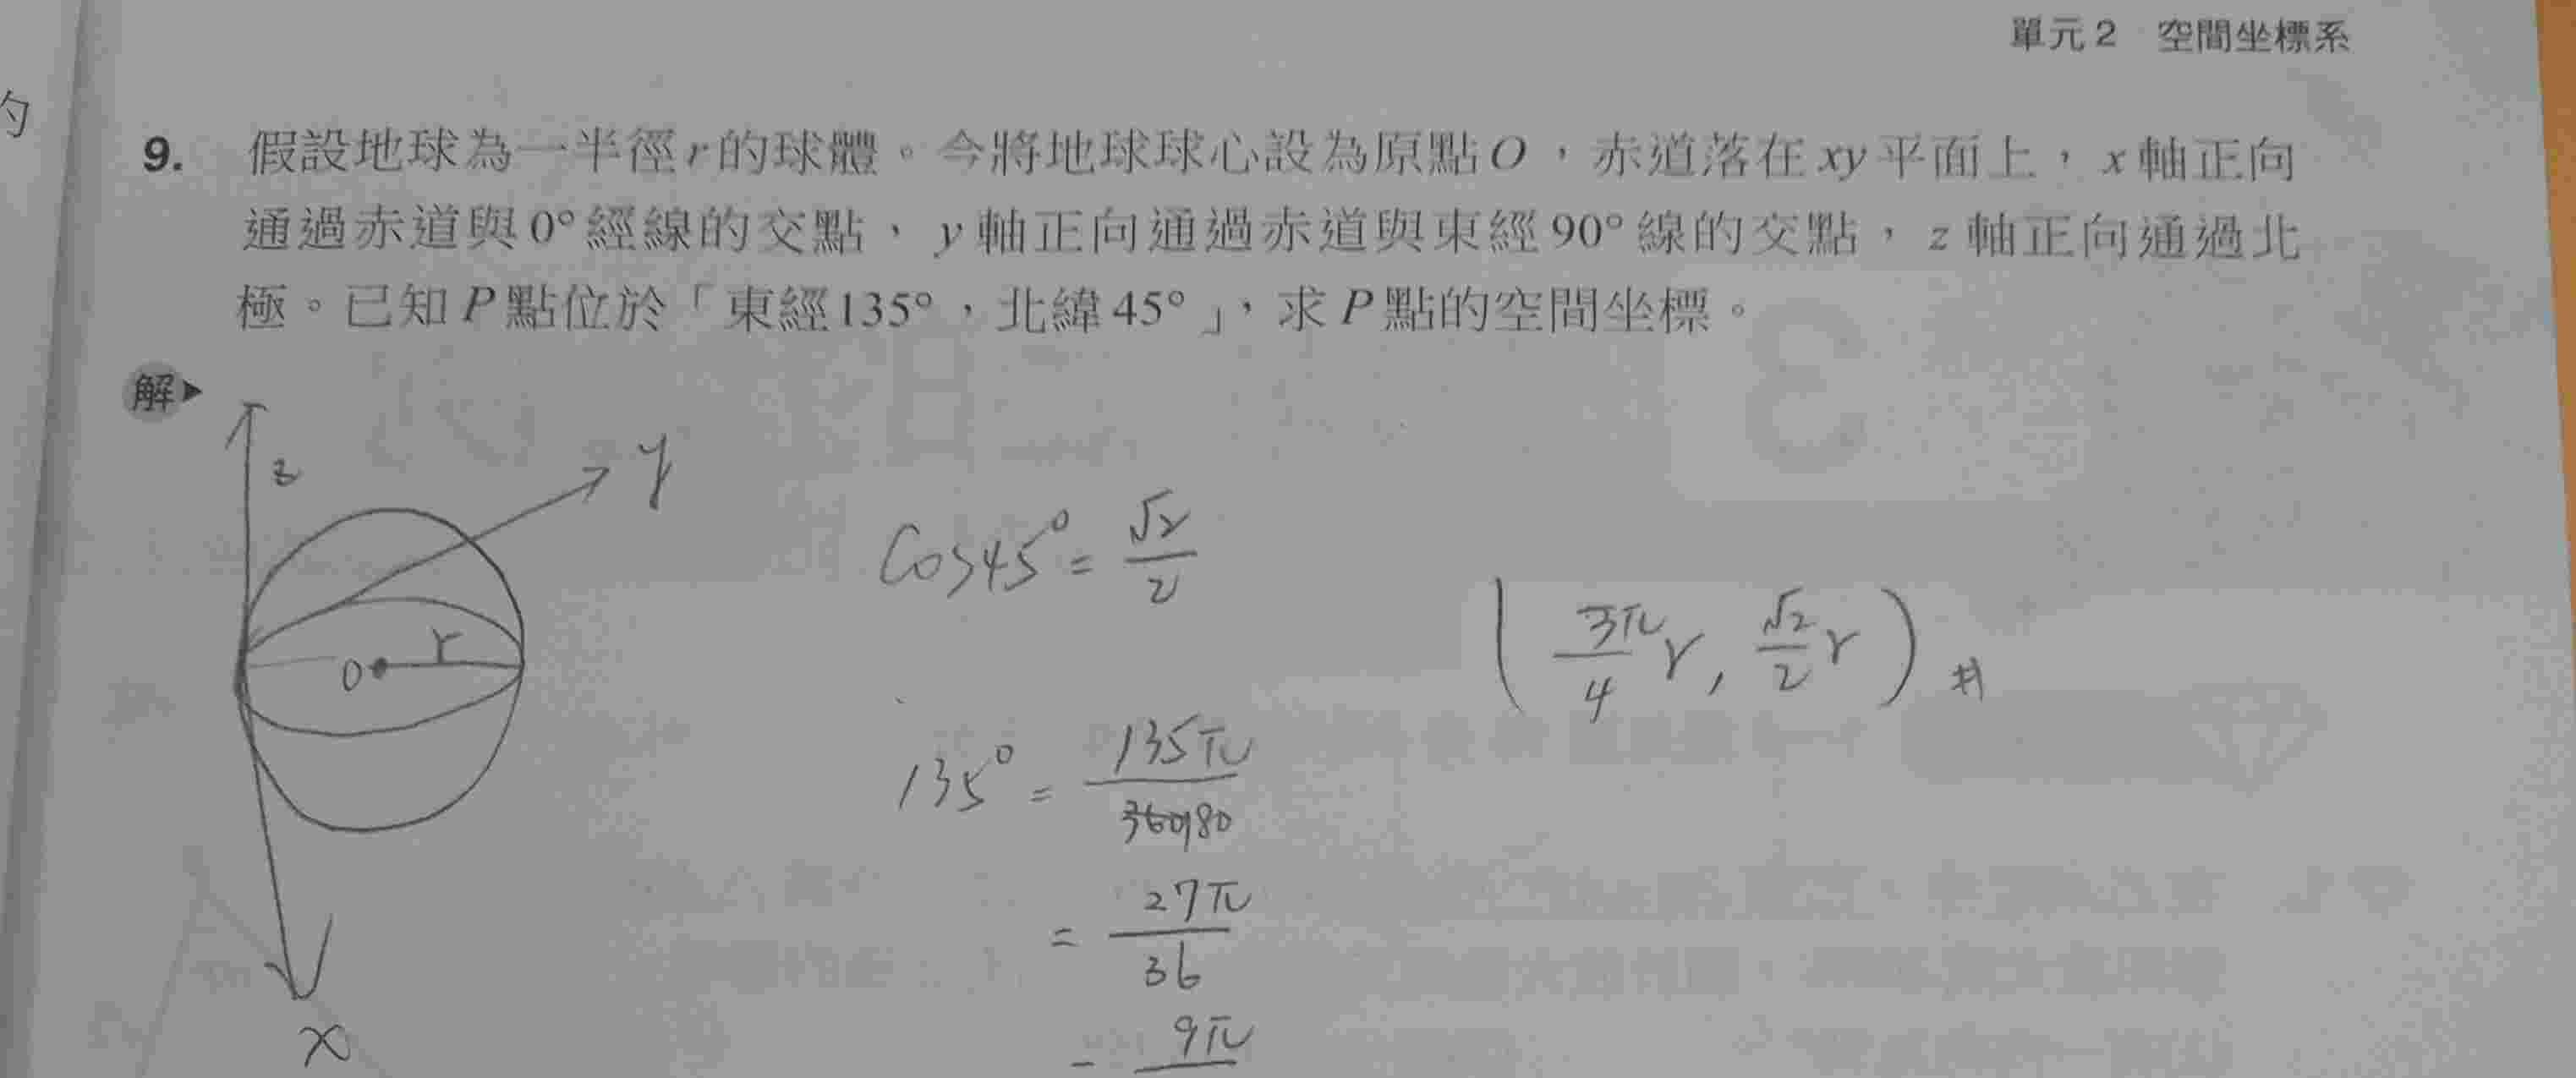 單元2 空間坐標系
的
9. 假設地球為一半徑r的球體。今將地球球心設為原點O,赤道落在xy平面上,x軸正向
通過赤道與0°經線的交點、y軸正向通過赤道與東經90°線的交點,z軸正向通過北
極。已知P點位於「東經135°,北緯45°」,求P點的空間坐標。
解▶
z
y
r
O
x
Cos45° = √2/2
135° = 135π/180
= 27π/36
= 9π
(3π/4 r, √2/2 r) #